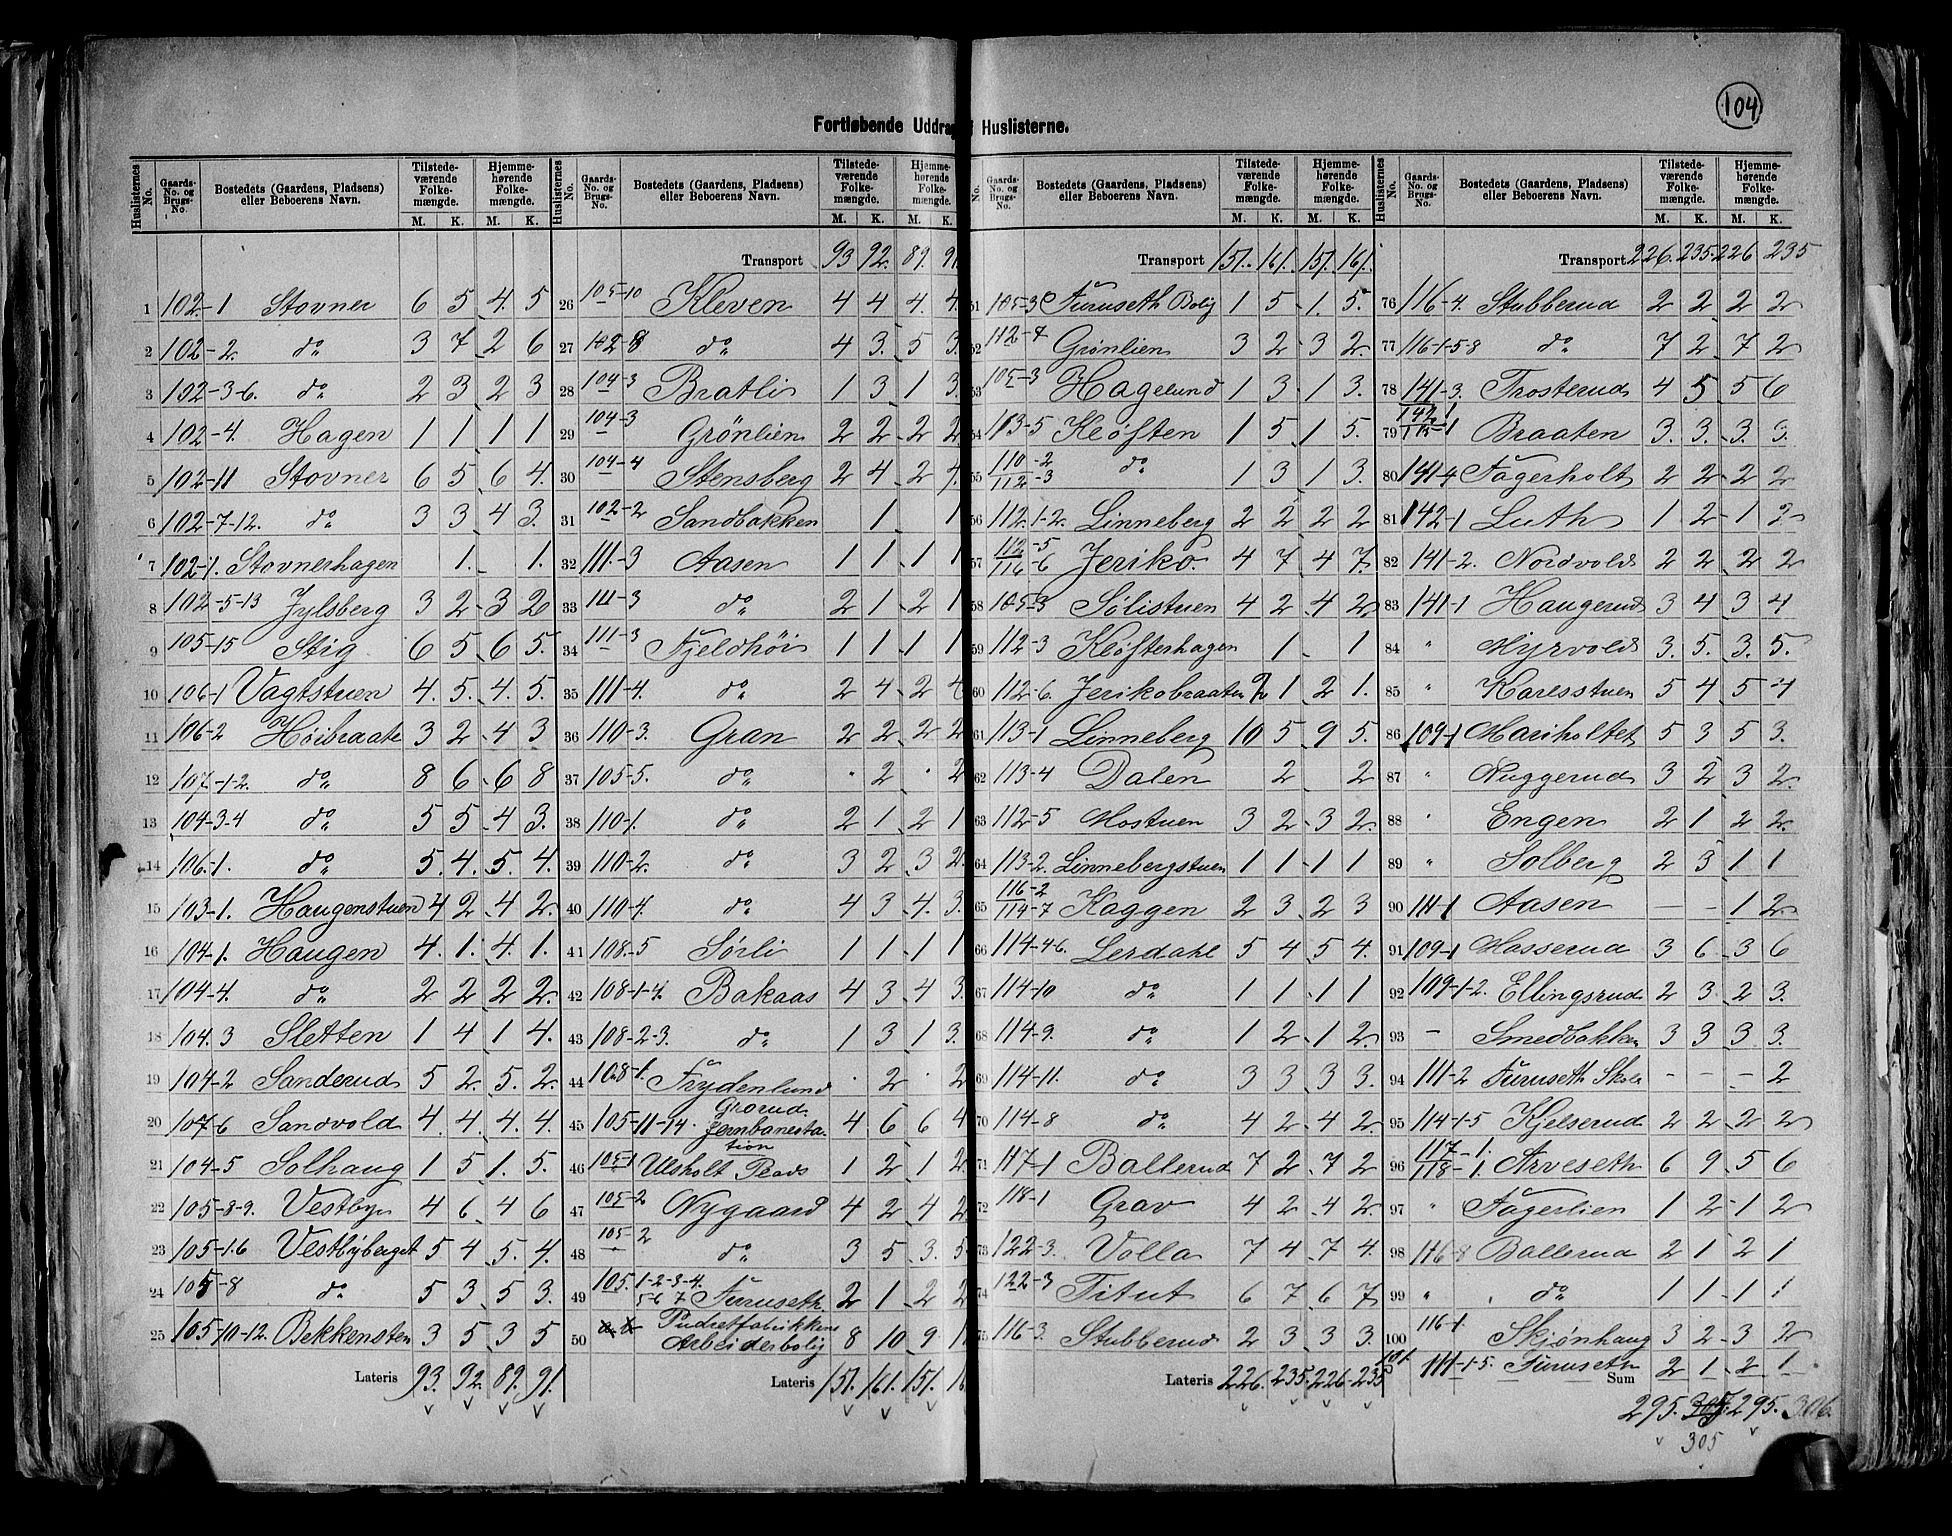 104
Fortløbende Uddrag Huslisterne.
Huslisternes No. Gaards-No. og Brugs-No. Bostedets (Gaardens, Pladsens) eller Beboerens Navn. Tilstedeværende Folkemængde. M. K. Hjemmehørende Folkemængde. M. K.
1 102-1 Stovner 6 5 4 5
2 102-2. do 3 7 2 6
3 102-3-6. do 2 3 2 3
4 102-4. Hagen 1 1 1 1
5 102-11 Stovner 6 5 6 4.
6 102-7-12. do 3 3 4 3.
7 102-1. Stovnerhagen 1. 1.
8 102-5-13 Jylsberg 3 2 3 2
9 105-15 Stig 6 5 6 5.
10 106-1 Vagtstuen 4. 5. 4. 5.
11 106-2 Høibraate 3 2 4 3
12 107-1-2. do 8 6 6 8
13 104-3-4 do 5 5 4 3.
14 106-1. do 5. 4. 5. 4.
15 103-1. Haugenstuen 4 2 4 2.
16 104-1. Haugen 4. 1. 4. 1.
17 104-4. do 2 2 2 2.
18 104.3 Sletten 1 4 1 4.
19 104-2 Sanderud 5 2. 5. 2.
20 107-6 Sandvold 4. 4. 4. 4.
21 104-5 Solhaug 1 5 1. 5.
22 105-8-9. Vestby 4 6 4 6
23 105-1.6 Vestbyberget 5 4 5. 4.
24 105-8 do 5 3 5 3.
25 105-10-12. Bekkensten 3 5 3 5
Lateris 93. 92. 89. 91.
Transport 93 92. 89. 91
26 105-10 Kleven 4 4 4 4
27 102-8 do 4 3. 5 3.
28 104-3 Bratli 1 3 1 3
29 104-3 Grönlien 2 2 2 2
30 104-4 Stensberg 2 4 2 4.
31 102-2 Sandbakken 1 1
32 111.-3 Aasen 1 1 1 1
33 111-3 do 2 1 2 1
34 111-3 Fjeldhöi 1 1 1 1
35 111-4. do 2 4 2 4
36 110-3. Gran 2 2 2 2
37 105-5. do 2 2
38 110-1. do 2 1 2 1
39 110-2. do 3 2 3 2.
40 110-4. do 4 3 4. 3.
41 108-5 Sørli 1 1 1 1
42 108-1-4. Bakaas 4 3 4 3.
43 108-2-3. do 1 3 1 3.
44 108-1. Frydenlund 2 2
45 105-11-14. Grorud Jernbanestation 4 6 6 4
46 105-1 Ulsholt Plads 1 2 1 2
47 105-2 Nygaard 4 2 4 2
48 105-2 do 3 5 3. 5
49 105.1-2-3-4. 5 6 7 Furuseth. 2 1 2 2
50 Pudretfabrikkens Arbeiderbolig 8 10 9 1
Lateris 151. 161. 151. 16
Transport 151. 161. 151. 161.
51 105-3 Furuseth Bolig 1 5 1. 5.
52 112-4 Grønlien 3 2 3 2.
53 105-3 Hagelund 1 3 1 3.
54 113-5 Kløften 1 5 1 5.
55 110-2 112-3 do 1 3 1 3.
56 112.1-2. Linneberg 2 2 2 2
57 112-5 116-6 Jeriko. 4 7 4 7.
58 105-3 Sølistuen 4 2 4 2
59 112-3 Kløfterhagen 1 1
60 112-6. Jerikobraaten 2 1 2 1.
61 113-1 Linneberg 10 5 9 5.
62 113-4 Dalen 2 2
63 112-5 Mostuen 3 2 3 2.
64 113-2. Linnebergstuen 1 1 1 1
65 116-2 114-7 Kaggen 2 3 2 3
66 114-4-6. Lerdahl 5 4 5 4.
67 114-10 do 1 1 1 1
68 114-9. do 1 2 1 2.
69 114-11. do 3 3 3 3.
70 114-8 do 4 2 4 2.
71 117-1 Ballerud 7 2 7 2
72 118-1 Grav 4 2 4 2.
73 122-3. Volla 7 4 7 4.
74 122-3 Titut 6 7 6 7
75 116-3. Stubberud 2 3 3 3.
Lateris 226. 235. 226. 235
Transport 226. 235. 226 235
76 116-4. Stubberud 2 2 2 2
77 116-1-5-8 do 7 2 7 2
78 141-3. Trosterud 4 5 5 6
79 142.1 115-1 Braaten 3. 3. 3. 3.
80 141-4 Fagerholt 2 2 2 2
81 142-1 Luth 1 2 1 2
82 141-2. Nordvold 2 2 2 2
83 141-1 Haugerud 3 4 3 4
84 " Myrvold 3. 5. 3. 5.
85 " Karesstuen 5 4 5 4
86 109-1 Mariholtet 5 3 5 3.
87 " Nuggerud 3 2 3 2.
88 " Engen 2 1 2 2.
89 " Solberg 2 3 1 1
90 111-1 Aasen — - 1 2.
91 109-1 Hasserud 3 6 3 6
92 109-1-2. Ellingsrud 2 3 2 3.
93 - Smedbakken 3 3 3 3.
94 111-2 Furuseth Skole - - - 2
95 114-1-5 Kjelserud 2 2 2 2
96 117-1. 118-1. Arveseth 6 9 5 6
97 " Fagerlien 1 2 1 2
98 116-8 Ballerud 2 1 2 1
99 " do 1 1 1 1
100 116-1. Skjønhaug 3 2 3 2
101. 111-1-5. Furuseth 2 1 2 1
Sum 295. 307 295. 306.
305